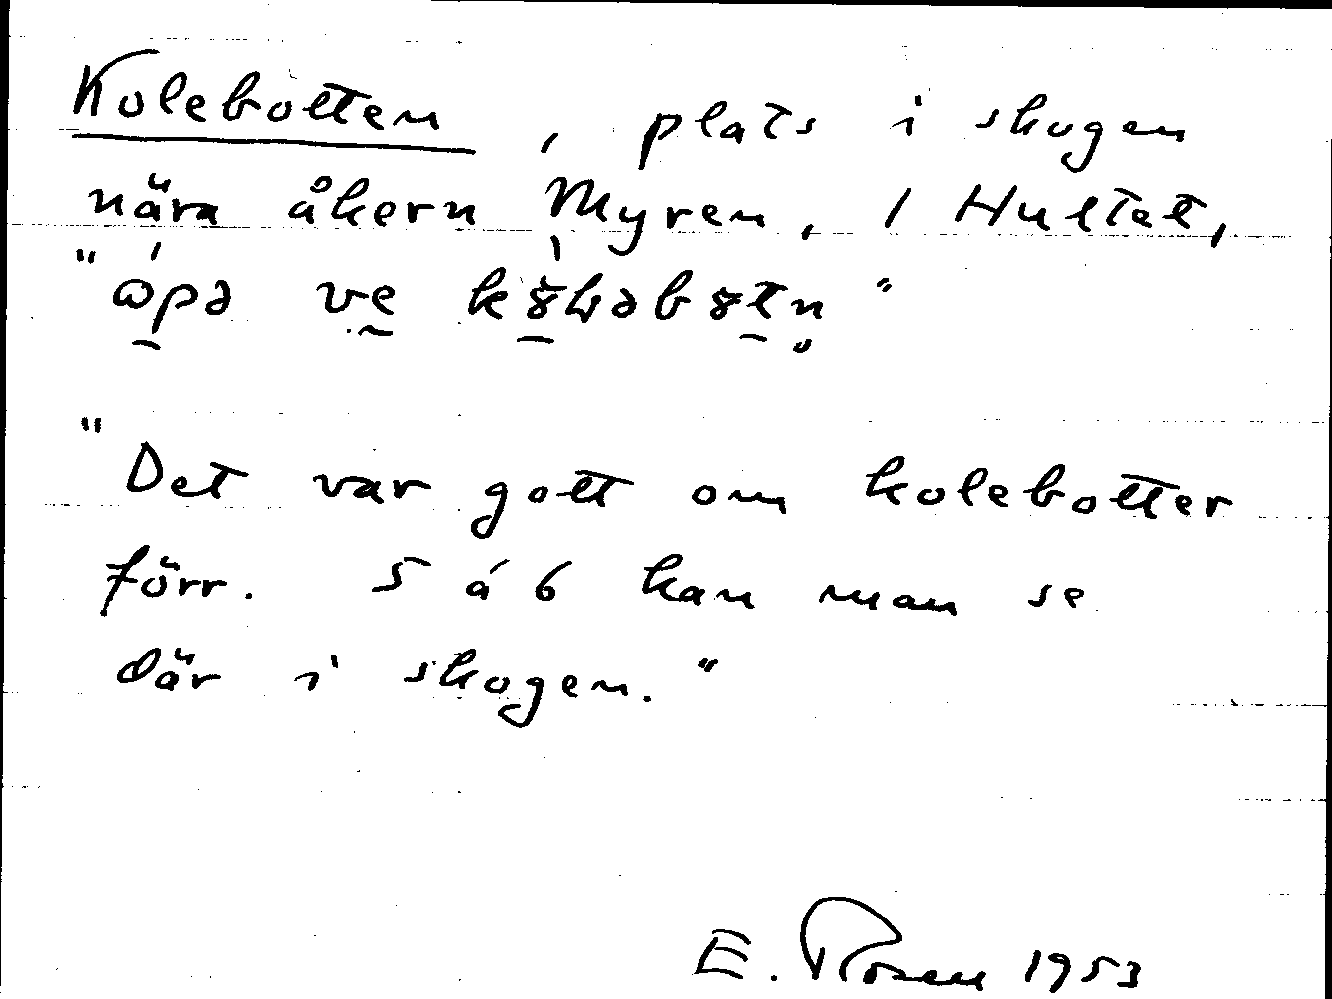 Kolebotten, plats i skogen
nära åkern Myren, 1 Hultet,
"ópə ve
"Det var gott om kolebotter
förr. 5 á 6 kan man se
där i skogen."
E. Rosen 1953